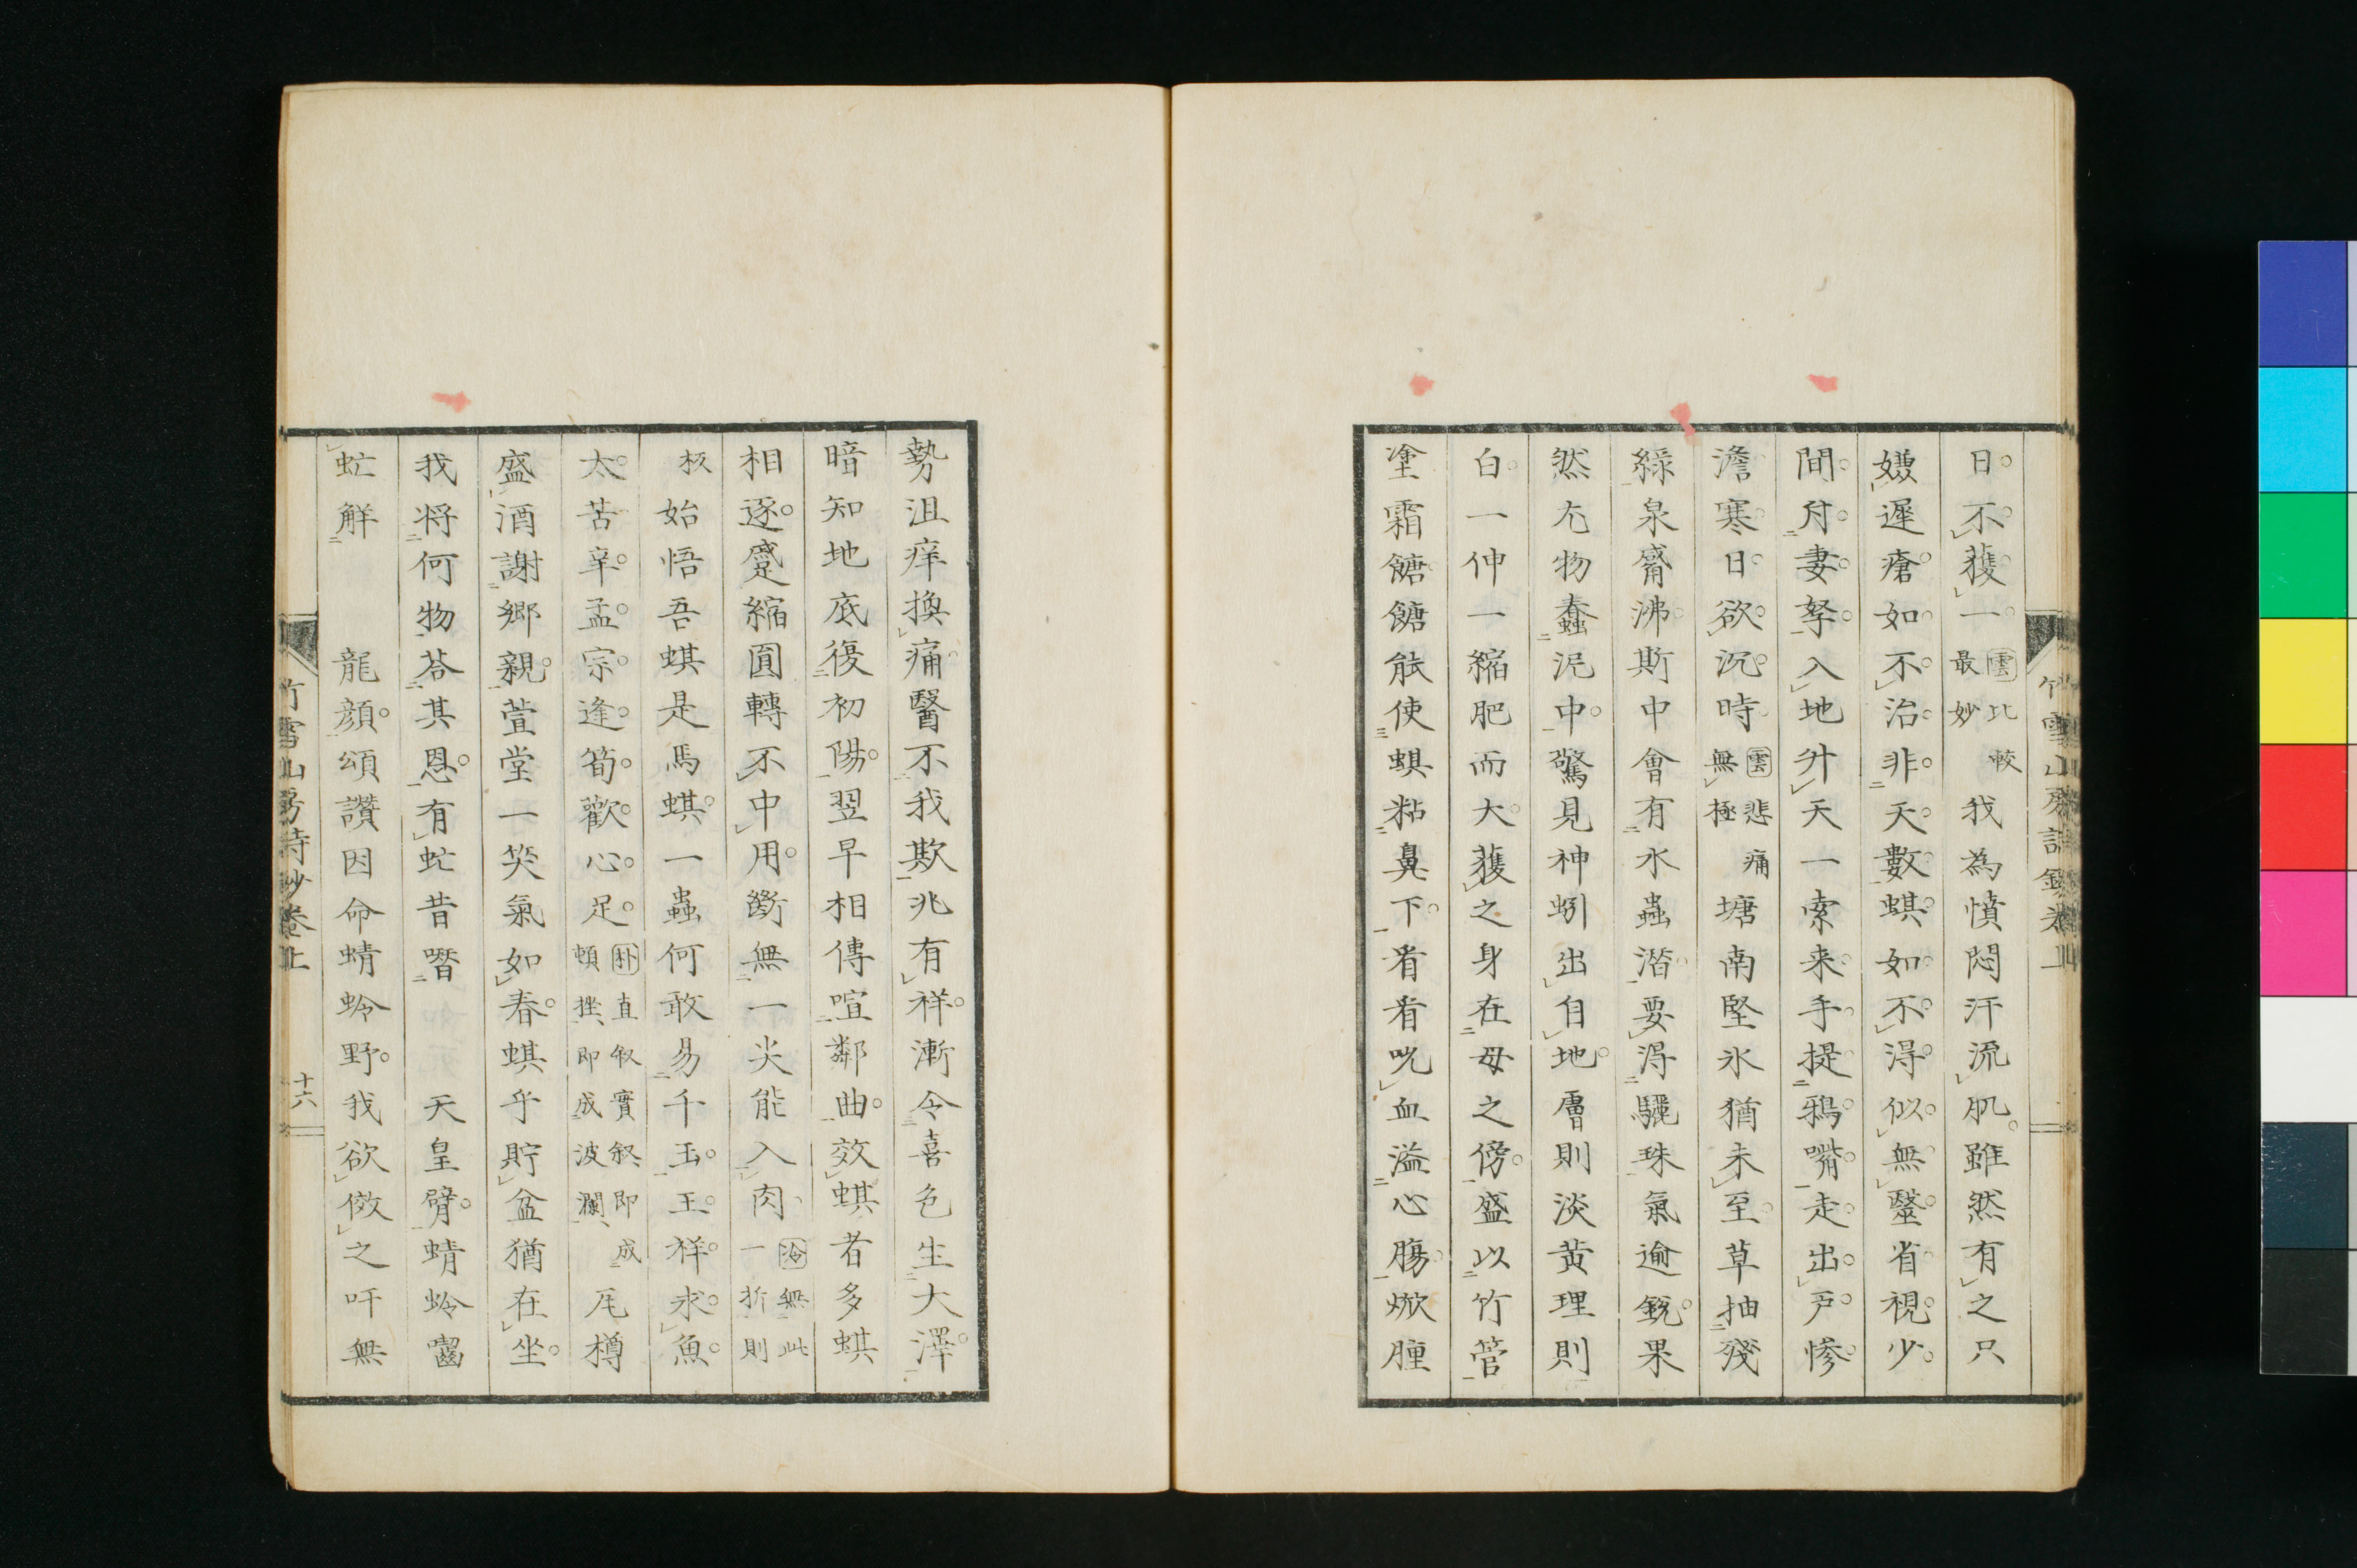 日不獲一㊂雲比較最妙我為憤悶汗流肌雖然有之只
嫌遲瘡如不治非夭數蜞如不得似無毉省視少
間肘妻孥入地升天一索来手提鴉嘴走出戸惨
澹寒日欲沉時雲悲痛無極塘南堅氷猶未至草抽殘
緑泉觱沸斯中會有水蟲潜要淂驪珠氣逾鋭果
然冘物蠢泥中驚見神蚓出自地膚則淡黄理則
白一伸一縮肥而大獲之身在母之傍盛以竹管
塗霜餹餹能使蜞粘鼻下看看吮血溢心膓焮腫
勢沮痒換痛醫不我欺兆有祥漸令喜色生大澤
暗知地底復初陽翌早相傳喧鄰曲效蜞者多蜞
相逐蹙縮圓轉不中用斷無一尖能入肉冷無此一折則
板始悟吾蜞是馬蜞一蟲何敢易千玉王祥求魚
太苦辛孟宗逢筍歡心足朴直叙實叙即成頓挫即成波瀾瓦樽
盛酒謝郷親萱堂一笑氣如春蜞乎貯盆猶在坐
我将何物荅其恩有虻昔噆天皇臂蜻蛉齧
虻解龍顔頌讚因命蜻蛉野我欲傚之吁無
竹雪山房詩鈔卷上
十六